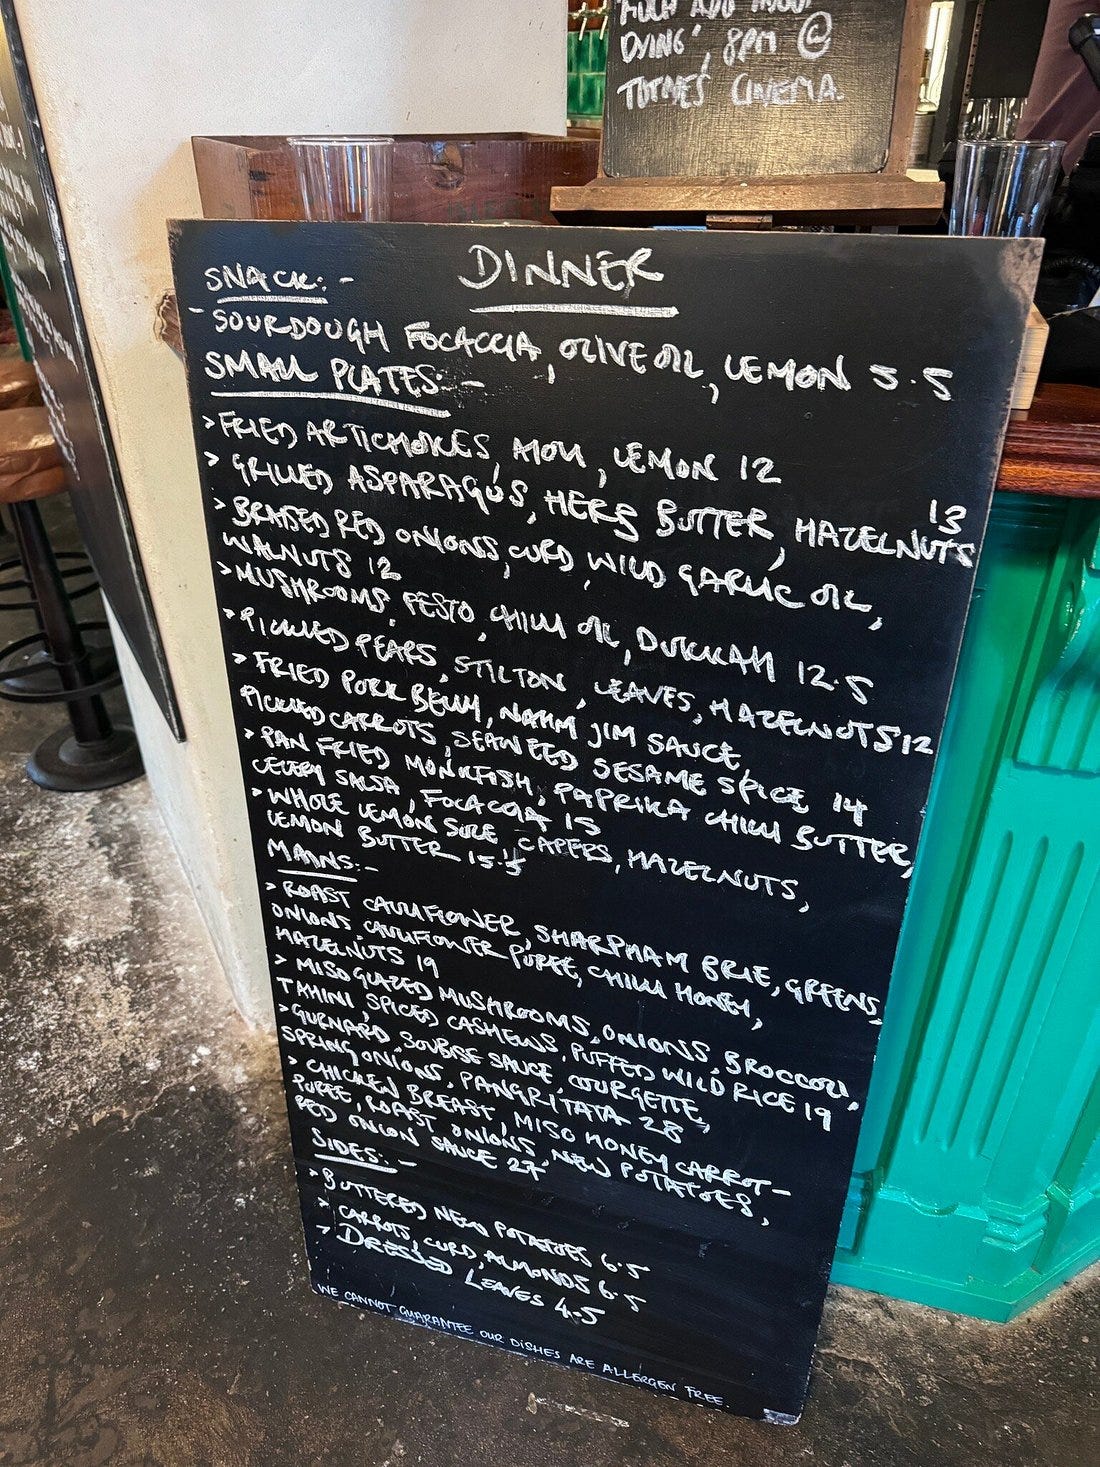 DYING', 8PM @
TOTNES CINEMA.
DINNER
SNACK:-
SOURDOUGH FOCACCIA, OLIVE OIL, LEMON 5.5
SMALL PLATES:-
> FRIED ARTICHOKES, AIOLI, LEMON 12
> GRILLED ASPARAGUS, HERB BUTTER, HAZELNUTS 13
> BRAISED RED ONIONS, CURD, WILD GARLIC OIL,
WALNUTS 12
> MUSHROOMS, PESTO, CHILLI OIL, DUKKAH 12.5
> PICKLED PEARS, STILTON, LEAVES, HAZELNUTS 12
> FRIED PORK BELLY, NAHM JIM SAUCE,
PICKLED CARROTS, SEAWEED SESAME SPICE 14
> PAN FRIED MONKFISH, PAPRIKA CHILLI BUTTER,
CELERY SALSA, FOCACCIA 15
> WHOLE LEMON SOLE, CAPERS, HAZELNUTS,
LEMON BUTTER 15.5
MAINS:-
> ROAST CAULIFLOWER, SHARPHAM BRIE, GREENS,
ONIONS, CAULIFLOWER PUREE, CHILLI HONEY,
HAZELNUTS 19
> MISO GLAZED MUSHROOMS, ONIONS, BROCCOLI,
TAHINI, SPICED CASHEWS, PUFFED WILD RICE 19
> GURNARD, SOUBISE SAUCE, COURGETTE,
SPRING ONIONS, PANGRITATA 28
> CHICKEN BREAST, MISO HONEY CARROT-
PUREE, ROAST ONIONS, NEW POTATOES,
RED ONION SAUCE 27
SIDES:-
> BUTTERED NEW POTATOES 6.5
> CARROTS, CURD, ALMONDS 6.5
> DRESSED LEAVES 4.5
WE CANNOT GUARANTEE OUR DISHES ARE ALLERGEN FREE.